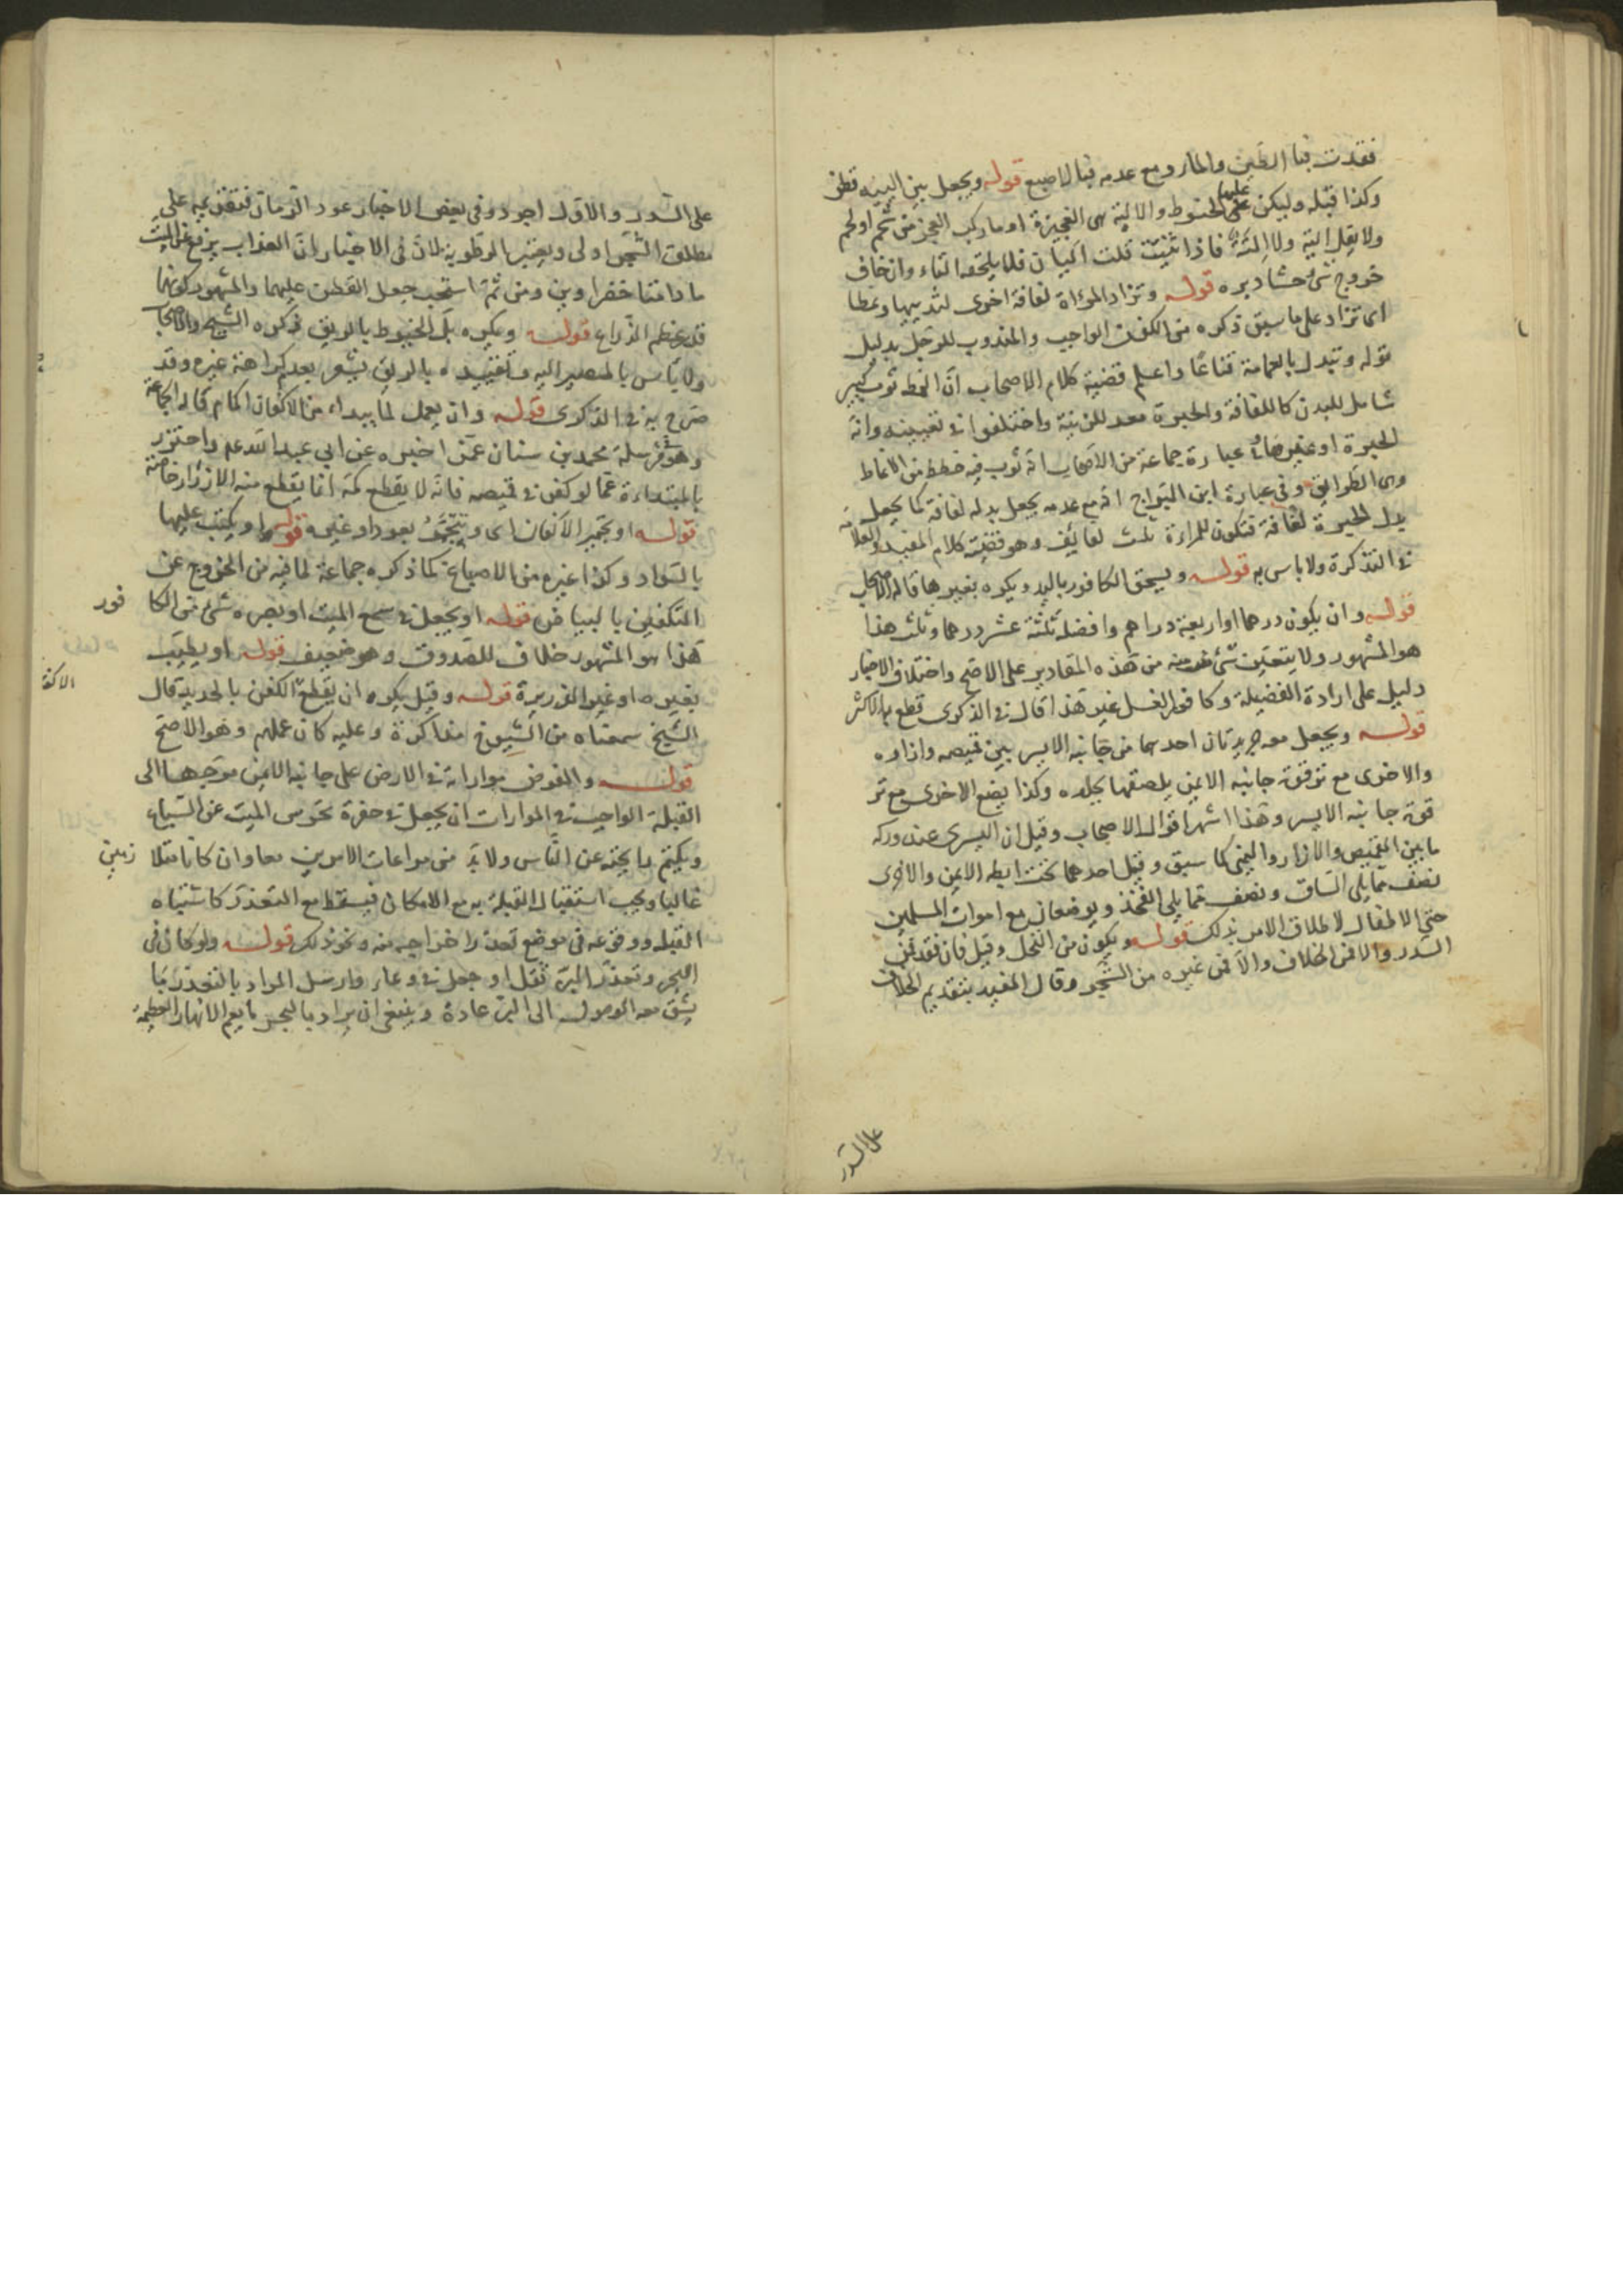 فقدت فبا الطين والمار ومع عدمه فبالاصبع قوله ويجعل بين اليتيه قطن
وكذا قبله وليكن عليها الحنوط والالية هى العجيزة او ما ركب العجز من شحم او لحم
ولا يقل الية ولا لية فاذا ثنيت قلت اليان فلا يلحقه التاء وان خاف
خروج شئ حشا دبره قوله وتزاد المرءاة لفافة اخرى لثدييها ونمطا
اى تزاد على ما سبق ذكره من الكفن الواجب والمندوب للرجل بدليل
قوله وتبدل بالعمامة قناعا واعلم قضية كلام الاصحاب ان النمط ثوب كبير
شامل للبدن كاللفافة والحبرة معد للزينة واختلفوا فى تعيينه وانه
الحبرة او غيرها عبارة جماعة من الاصحاب انه ثوب فيه خطط من الانماط
وهى الطرايق وفى عبارة ابن البراج انه مع عدمه يجعل بدله لفافة كما يجعل
بدل الحبرة لفافة فتكون للمراءة ثلث لفائف وهو قضية كلام المفيد والعلامة
فى التذكرة ولا باس به قوله ويسحق الكافور باليد ويكره بغيرها قاله الاصحاب
قوله وان يكون درهما او اربعة دراهم وافضله ثلثة عشر درهما وثلث هذا
هو المشهور ولا يتعين شئ منه من هذه المقادير على الاصح واختلاف الاخبار
دليل على ارادة الفضيلة وكافور الغسل غير هذا قال فى الذكرى قطع به الاكثر
قوله ويجعل معه جريدتان احدهما من جانبه الايسر بين قميصه وازاره
والاخرى مع ترقوة جانبه الايمن يلصقها بجلده وكذا يضع الاخرى مع تر
قوة جانبه الايسر وهذا اشهر اقوال الاصحاب وقيل ان اليسرى عند وركه
ما بين القميص والازار واليمنى كما سبق وقيل احدهما تحت ابطه الايمن والاخرى
نصف مما يلى الساق ونصف مما يلى الفخذ ويوضعان مع اموات المسلمين
حتى الاطفال لاطلاق الامر بذلك قوله ويكون من النخل وقيل فان فقد فمن
السدر والا فمن الخلاف والا فمن غيره من الشجر وقال المفيد بتقديم الخلاف
على السدر
على السدر والاول اجود وفى بعض الاخبار عود الرمان فتقديمه على
مطلق الشجر اولى ويعتبر الرطوبة لان فى الاخبار ان العذاب يرفع عن الميت
ما دامتا خضراوين ومن ثم استحب جعل القطن عليهما والمشهور كونهما
قدر عظم الذراع قوله ويكره بل الخيوط بالريق ذكره الشيخ والاصحاب
ولا باس بالمصير اليه وتقييده بالريق يشعر بعدم كراهة غيره وقد
صرح به فى الذكرى قوله وان يعمل لما يبداء من الاكفان اكمام قاله الجماعة
وهو فى مرسلة محمد بن سنان عمن اخبره عن ابى عبد الله عم واحترز
بالمبتداءة عما لو كفن فى قميصه فانه لا يقطع كمه انما يقطع منه الازرار خاصة
قوله او تجمير الاكفان اى وتجمر بعود او غيره قوله او يكتب عليها
بالسواد وكذا غيره من الاصباغ كما ذكره جماعة لما فيه من الخروج عن
التكفين بالبياض قوله او يجعل فى سمع الميت او بصره شئ من الكا
فور
هذا هو المشهور خلاف للصدوق وهو ضعيف قوله او يطيب
الاكفا
بغيره او غير الذريرة قوله وقيل يكره ان يقطع الكفن بالحديد قال
الشيخ سمعناه من الشيوخ مذاكرة وعليه كان عملهم وهو الاصح
قوله والفرض مواراته فى الارض على جانبه الايمن موجها الى
القبلة الواجب فى الموارات ان يجعل فى حفرة تحرس الميت عن السباع
ويكتم ريحته عن الناس ولا بد من مراعات الامرين معا وان كانا متلا
زمين
غالبا ويجب استقبال القبلة به مع الامكان فيسقط مع التعذر كاشتباه
القبله ووقوعه فى موضع تعذر اخراجه منه ونحو ذلك قوله ولو كان فى
البحر وتعذر البر ثقل او جعل فى وعاء وارسل المراد بالتعذر ما
يشق معه الوصول الى البر عادة وينبغى ان يراد بالبحر ما يعم الانهار العظيمة